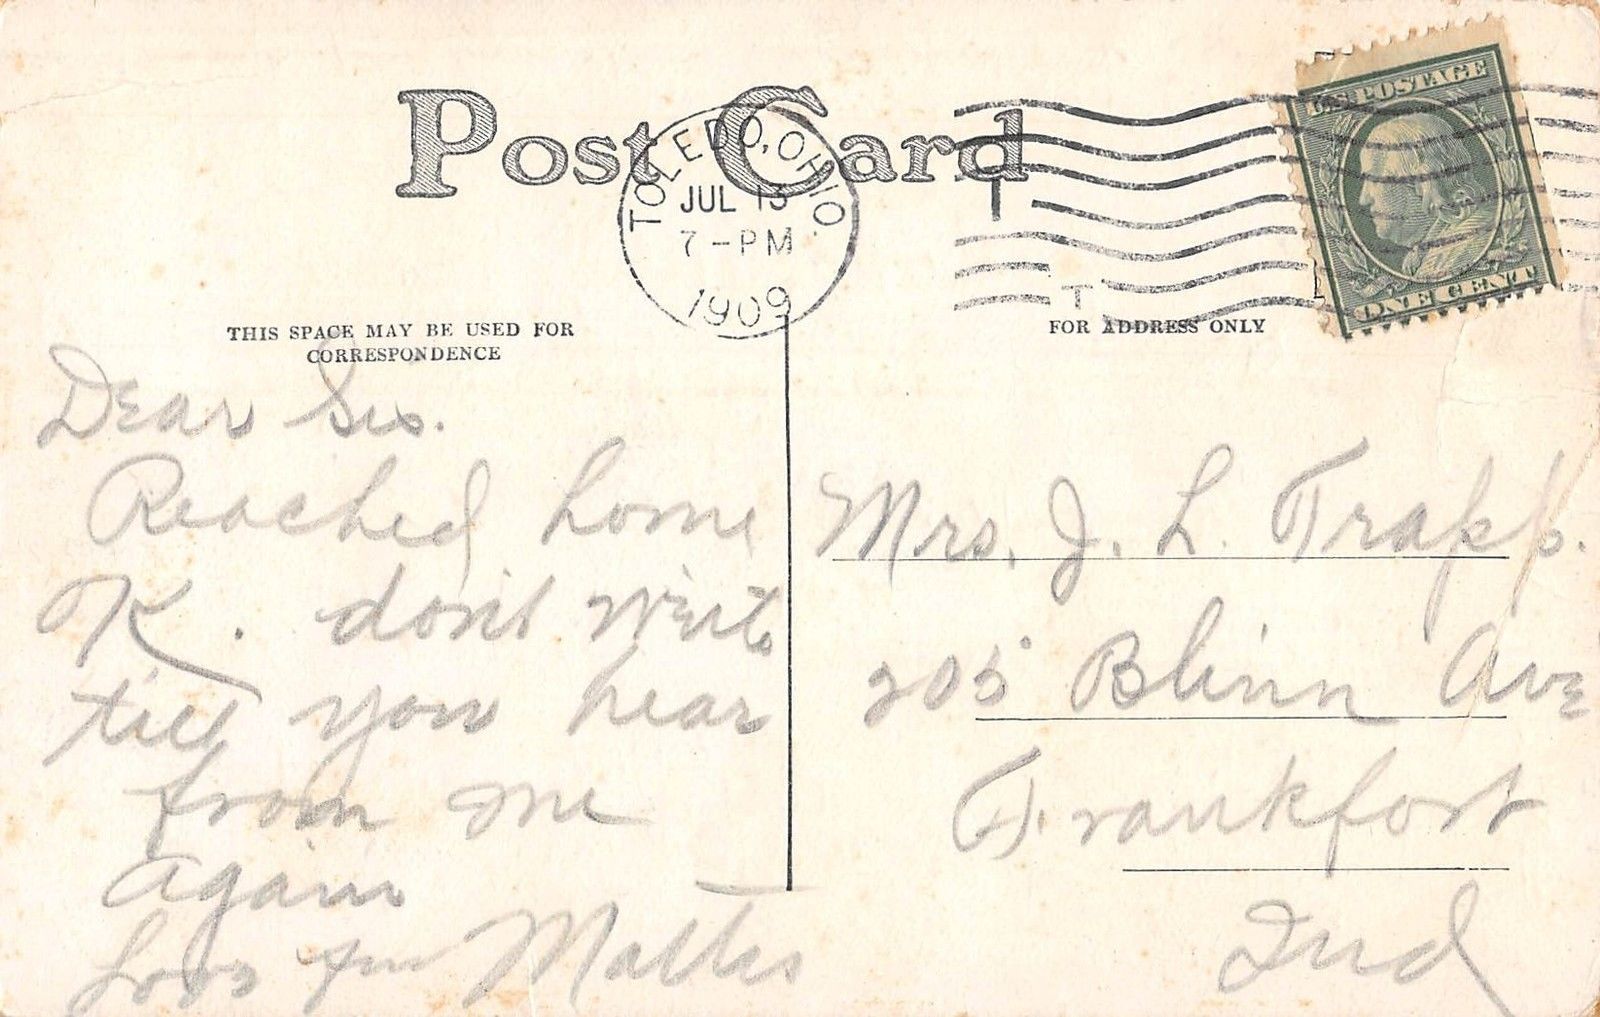 Post Card
TOLEDO, OHIO.
JUL 13
7-PM
1909
U.S. POSTAGE
ONE CENT
THIS SPACE MAY BE USED FOR
CORRESPONDENCE
FOR ADDRESS ONLY
Dear Sis.
Reached home
K. don't write
till you hear
from me
again
Love
Mrs. J. L. Trapp.
205 Blinn Ave
Frankfort
Ind